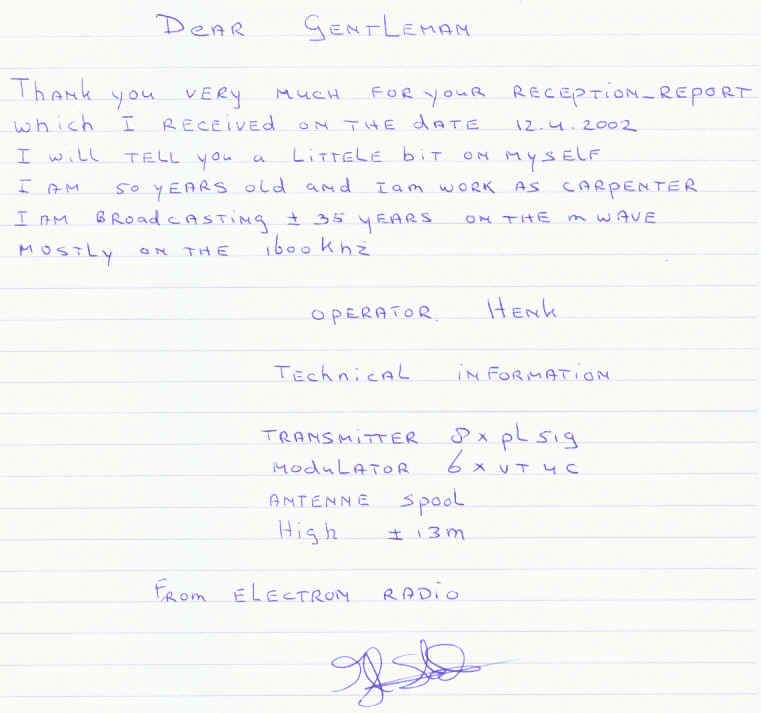 Dear Gentleman
Thank you very much for your reception-report
which I received on the date 12.4.2002
I will tell you a littele bit on myself
I am 50 years old and Iam work as carpenter
I am broadcasting ± 35 years on the m wave
mostly on the 1600 khz
operator Henk
Technical information
Transmitter 8 x pl 519
Modulator 6 x VT 4 C
Antenne spool
High ± 13m
From Electron Radio